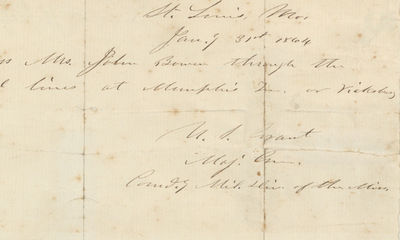 St. Louis, Mo.
Jan.y 31st 1864
s Mrs. John Bowen through the
l lines at Memphis Tn. or Vicksburg
U. S. Grant
Maj. Gen.
Comd.g Mil. Div. of the Miss.